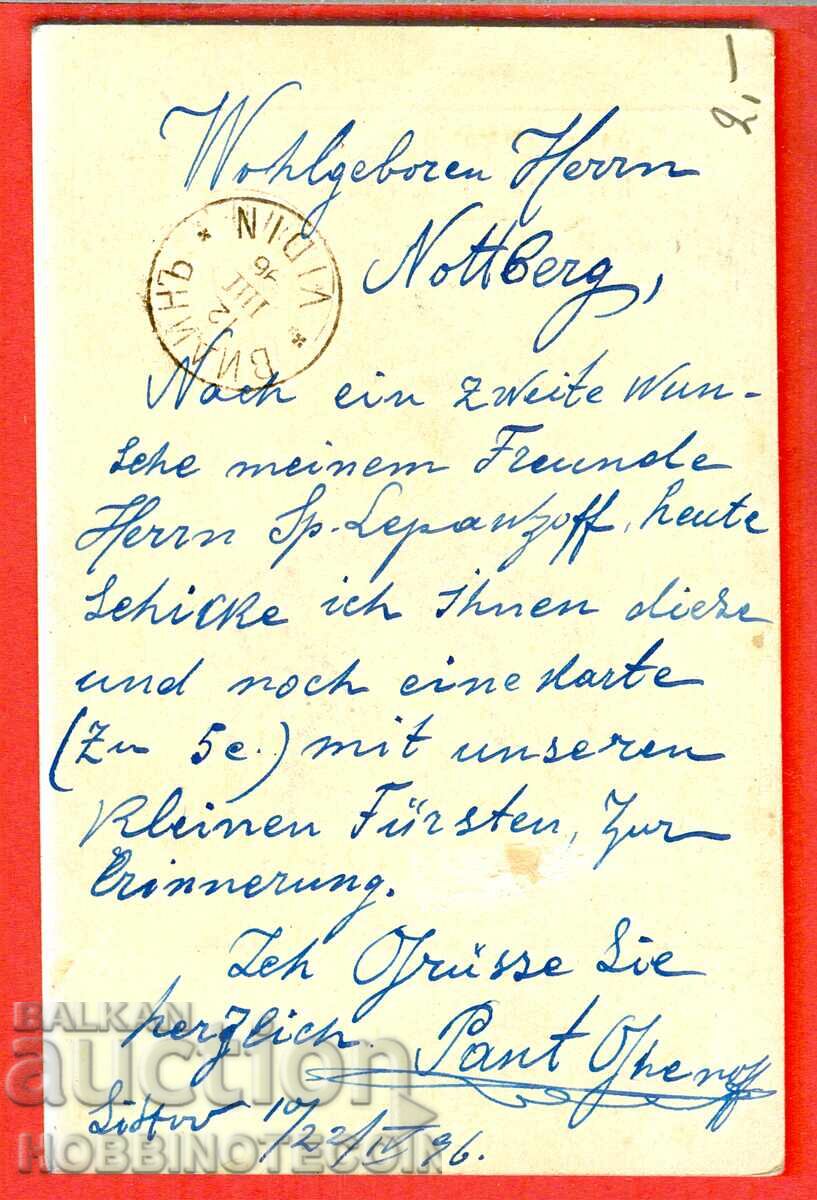 2,—
Wohlgeboren Herrn
Nottberg,
ВИДИНЪ * VIDIN *
12
III
96
Noch ein zweite Wun-
sche meinem Freunde
Herrn Sp. Lepantzoff, heute
schicke ich Ihnen diese
und noch eine Karte
(Zu 5c.) mit unseren
Kleinen Fürsten, Zur
Erinnerung.
Ich Grüsse Sie
herzlich. Pant Ghenoff
Sistov 10/22/IV 96.
BALKAN
auction
HOBBINOTECOIN